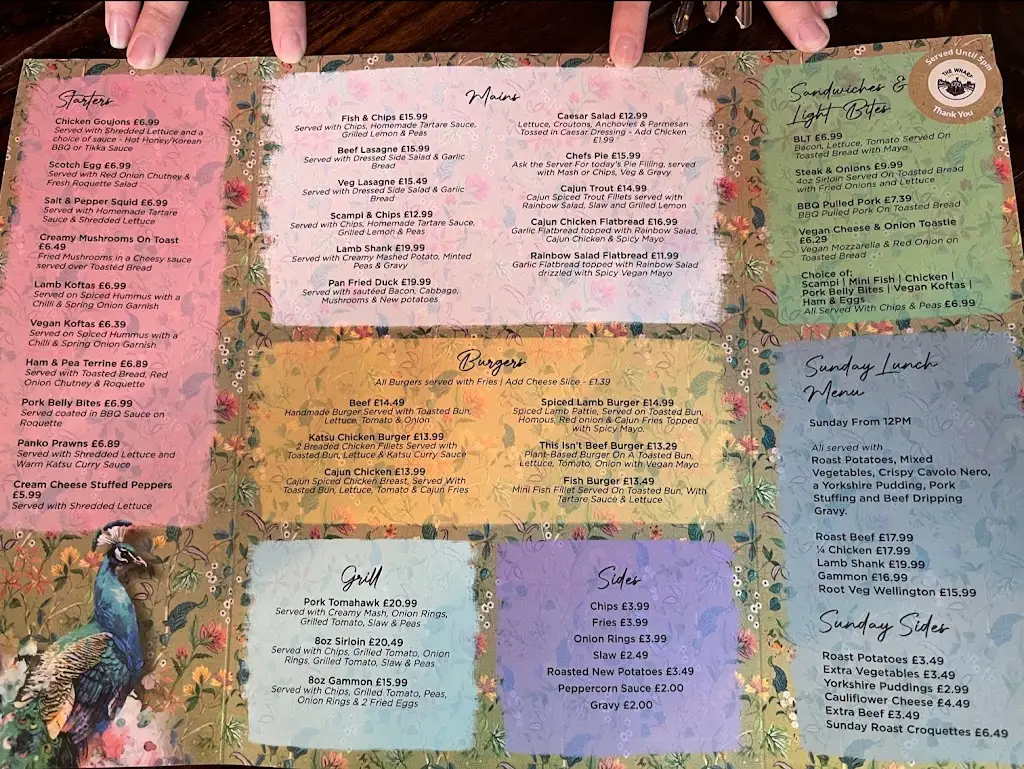 Starters
Chicken Goujons £6.99
Served with Shredded Lettuce and a
choice of sauce - Hot Honey/Korean
BBQ or Tikka Sauce
Scotch Egg £6.99
Served with Red Onion Chutney &
Fresh Roquette Salad
Salt & Pepper Squid £6.99
Served with Homemade Tartare
Sauce & Shredded Lettuce
Creamy Mushrooms On Toast
£6.49
Fried Mushrooms in a Cheesy sauce
served over Toasted Bread
Lamb Koftas £6.99
Served on Spiced Hummus with a
Chilli & Spring Onion Garnish
Vegan Koftas £6.39
Served on Spiced Hummus with a
Chilli & Spring Onion Garnish
Ham & Pea Terrine £6.89
Served with Toasted Bread, Red
Onion Chutney & Roquette
Pork Belly Bites £6.99
Served coated in BBQ Sauce on
Roquette
Panko Prawns £6.89
Served with Shredded Lettuce and
Warm Katsu Curry Sauce
Cream Cheese Stuffed Peppers
£5.99
Served with Shredded Lettuce
Mains
Fish & Chips £15.99
Served with Chips, Homemade Tartare Sauce,
Grilled Lemon & Peas
Beef Lasagne £15.99
Served with Dressed Side Salad & Garlic
Bread
Veg Lasagne £15.49
Served with Dressed Side Salad & Garlic
Bread
Scampi & Chips £12.99
Served with Chips, Homemade Tartare Sauce,
Grilled Lemon & Peas
Lamb Shank £19.99
Served with Creamy Mashed Potato, Minted
Peas & Gravy
Pan Fried Duck £19.99
Served with sautéed Bacon, Cabbage,
Mushrooms & New potatoes
Caesar Salad £12.99
Lettuce, Croutons, Anchovies & Parmesan
Tossed in Caesar Dressing - Add Chicken
£1.99
Chefs Pie £15.99
Ask the Server For today's Pie Filling, served
with Mash or Chips, Veg & Gravy
Cajun Trout £14.99
Cajun Spiced Trout Fillets served with
Rainbow Salad, Slaw and Grilled Lemon
Cajun Chicken Flatbread £16.99
Garlic Flatbread topped with Rainbow Salad,
Cajun Chicken & Spicy Mayo
Rainbow Salad Flatbread £11.99
Garlic Flatbread topped with Rainbow Salad
drizzled with Spicy Vegan Mayo
Burgers
All Burgers served with Fries | Add Cheese Slice - £1.39
Beef £14.49
Handmade Burger Served with Toasted Bun,
Lettuce, Tomato & Onion
Katsu Chicken Burger £13.99
2 Breaded Chicken Fillets Served with
Toasted Bun, Lettuce & Katsu Curry Sauce
Cajun Chicken £13.99
Cajun Spiced Chicken Breast, Served With
Toasted Bun, Lettuce, Tomato & Cajun Fries
Spiced Lamb Burger £14.99
Spiced Lamb Pattie, Served on Toasted Bun,
Homous, Red onion & Cajun Fries Topped
with Spicy Mayo.
This Isn't Beef Burger £13.29
Plant-Based Burger On A Toasted Bun,
Lettuce, Tomato, Onion with Vegan Mayo
Fish Burger £13.49
Mini Fish Fillet Served On Toasted Bun, With
Tartare Sauce & Lettuce
Grill
Pork Tomahawk £20.99
Served with Creamy Mash, Onion Rings,
Grilled Tomato, Slaw & Peas
8oz Sirloin £20.49
Served with Chips, Grilled Tomato, Onion
Rings, Grilled Tomato, Slaw & Peas
8oz Gammon £15.99
Served with Chips, Grilled Tomato, Peas,
Onion Rings & 2 Fried Eggs
Sides
Chips £3.99
Fries £3.99
Onion Rings £3.99
Slaw £2.49
Roasted New Potatoes £3.49
Peppercorn Sauce £2.00
Gravy £2.00
Sandwiches &
Light Bites
Served Until 5pm
THE WHARF
Thank You
BLT £6.99
Bacon, Lettuce, Tomato Served On
Toasted Bread with Mayo
Steak & Onions £9.99
4oz Sirloin Served On Toasted Bread
with Fried Onions and Lettuce
BBQ Pulled Pork £7.39
BBQ Pulled Pork On Toasted Bread
Vegan Cheese & Onion Toastie
£6.29
Vegan Mozzarella & Red Onion on
Toasted Bread
Choice of:
Scampi | Mini Fish | Chicken |
Pork Belly Bites | Vegan Koftas |
Ham & Eggs
All Served With Chips & Peas £6.99
Sunday Lunch
Menu
Sunday From 12PM
All served with
Roast Potatoes, Mixed
Vegetables, Crispy Cavolo Nero,
a Yorkshire Pudding, Pork
Stuffing and Beef Dripping
Gravy.
Roast Beef £17.99
¼ Chicken £17.99
Lamb Shank £19.99
Gammon £16.99
Root Veg Wellington £15.99
Sunday Sides
Roast Potatoes £3.49
Extra Vegetables £3.49
Yorkshire Puddings £2.99
Cauliflower Cheese £4.49
Extra Beef £3.49
Sunday Roast Croquettes £6.49